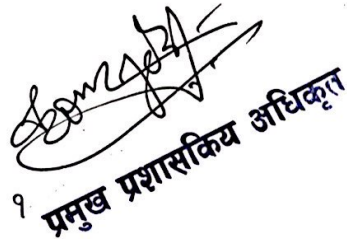 १
प्रमुख प्रशासकिय अधिकृत